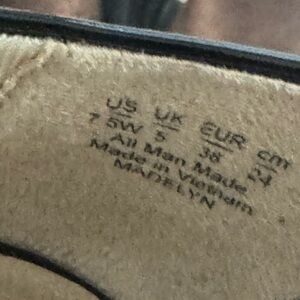 US UK EUR cm
7.5W 5 38 24
All Man Made
Made in Vietnam
MADELYN